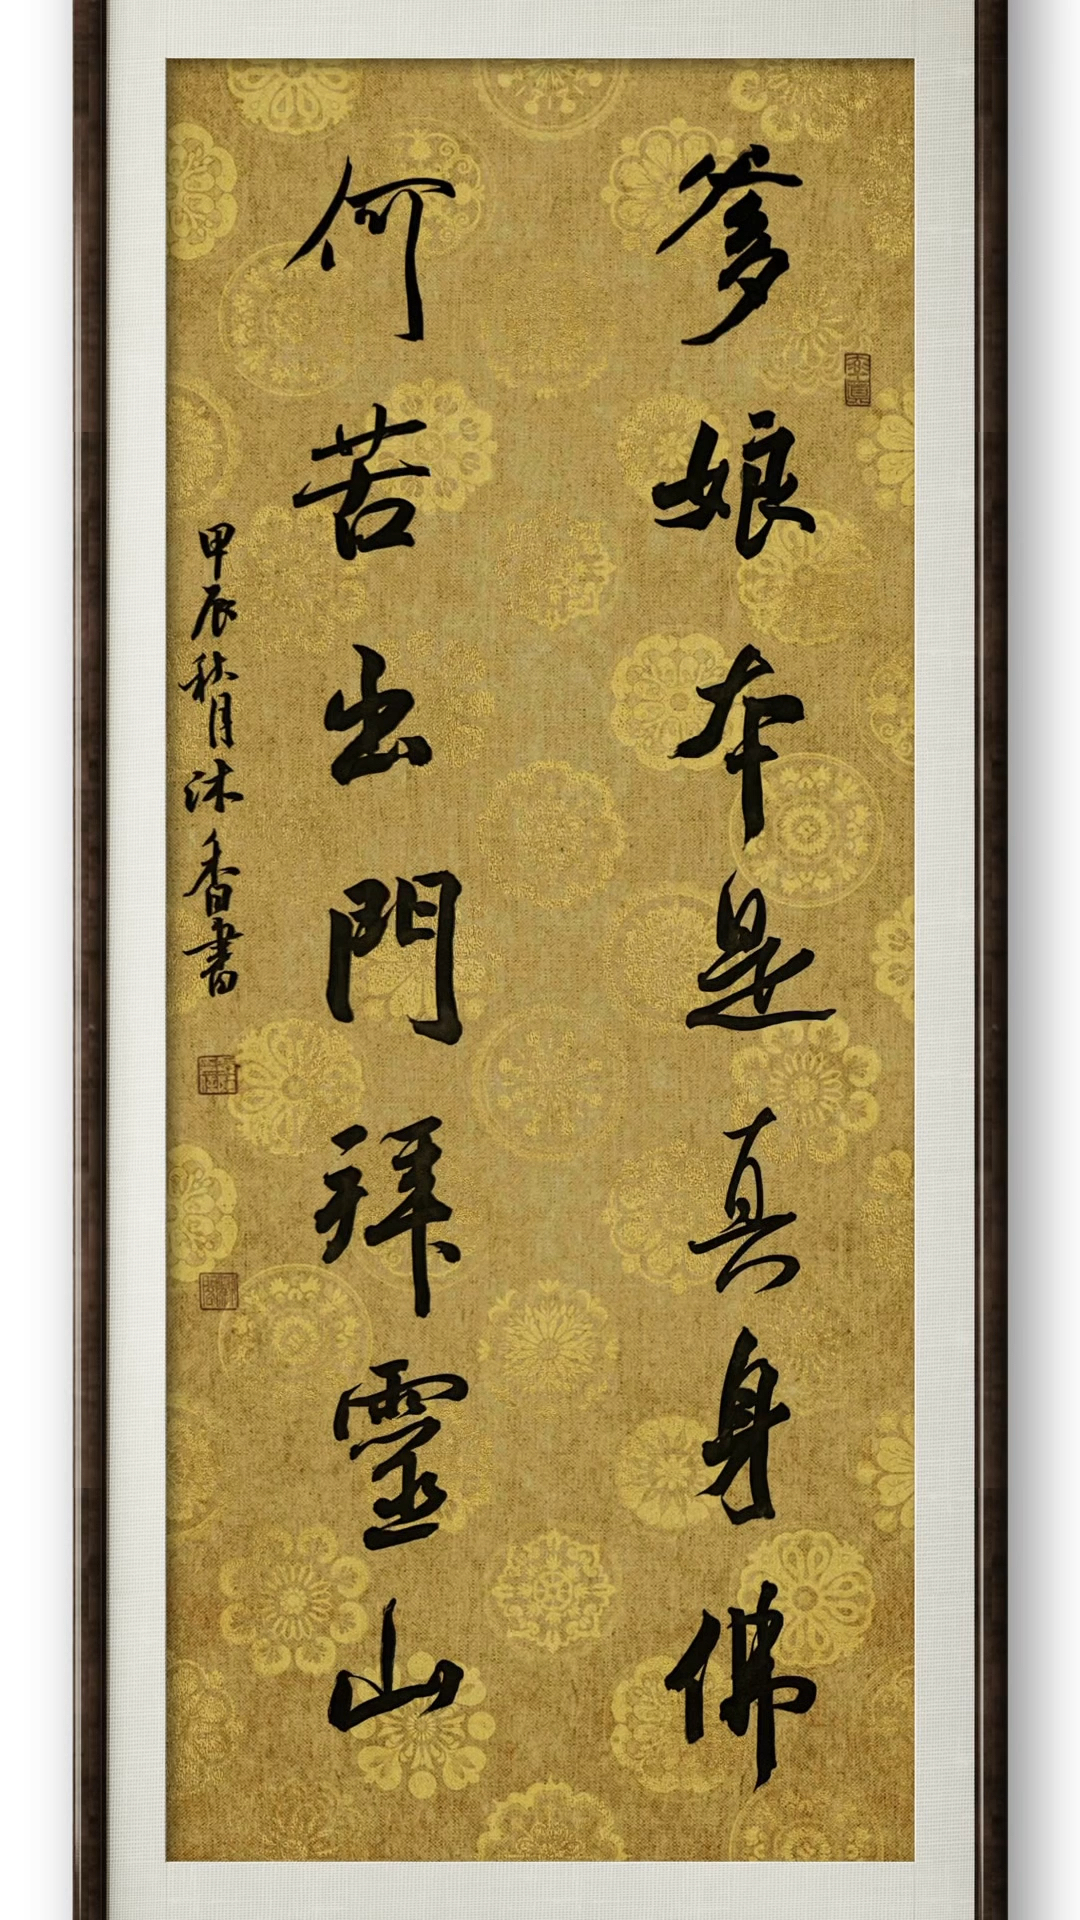 爹娘本是真身佛
何苦出門拜靈山
甲辰秋月沐香書